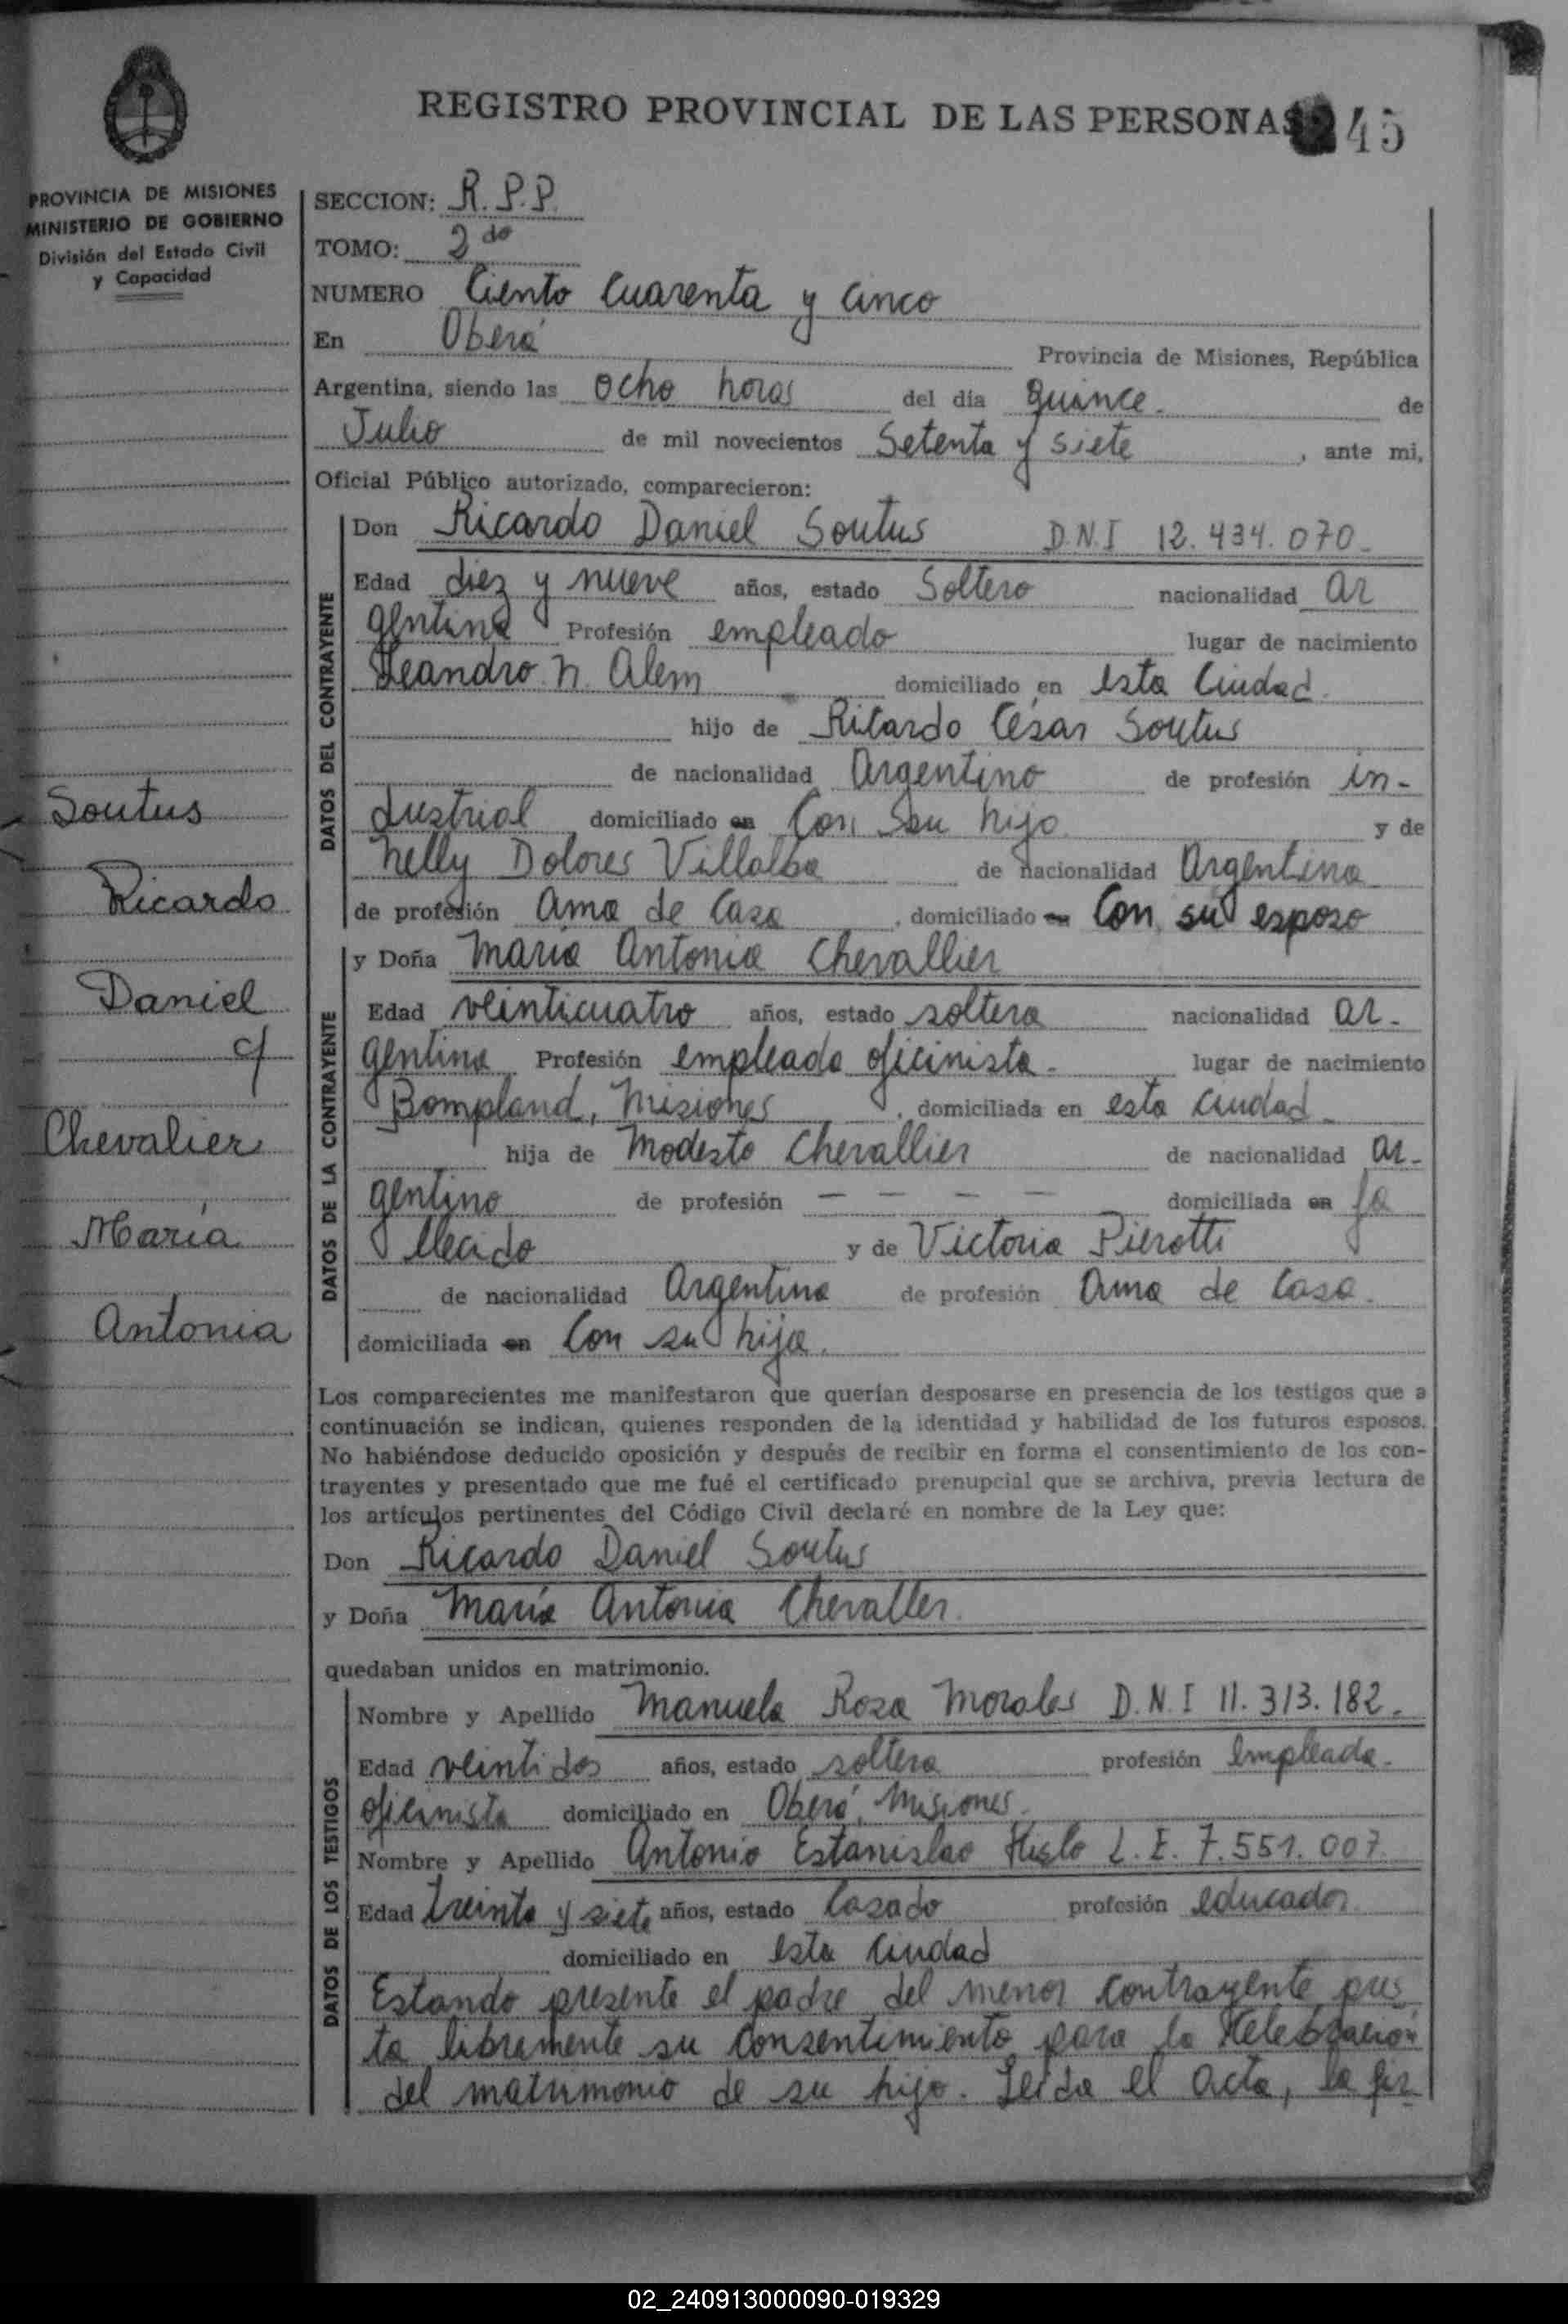 REGISTRO PROVINCIAL DE LAS PERSONAS 145
PROVINCIA DE MISIONES
MINISTERIO DE GOBIERNO
División del Estado Civil
y Capacidad
SECCION: R.P.P.
TOMO: 2do
NUMERO Ciento Cuarenta y cinco
En Oberá Provincia de Misiones, República
Argentina, siendo las ocho horas del día quince. de
Julio de mil novecientos Setenta y siete, ante mi,
Oficial Público autorizado, comparecieron:
DATOS DEL CONTRAYENTE
Don Ricardo Daniel Soutus D.N.I 12.434.070-
Edad diez y nueve años, estado Soltero nacionalidad ar
gentina Profesión empleado lugar de nacimiento
Leandro N. Alem domiciliado en esta Ciudad.
hijo de Ricardo César Soutus
de nacionalidad Argentino de profesión in-
dustrial domiciliado en Con Sau hijo y de
Nelly Dolores Villalba de nacionalidad Argentina
de profesión Ama de Casa, domiciliado en Con su esposo
DATOS DE LA CONTRAYENTE
y Doña María Antonia Chevallier
Edad veinticuatro años, estado soltera nacionalidad ar-
gentina Profesión empleada oficinista- lugar de nacimiento
Bompland, Misiones, domiciliada en esta ciudad-
hija de Modesto Chevallier de nacionalidad ar-
gentino de profesión - - - - domiciliada en fa
llecido y de Victoria Pierotti
de nacionalidad Argentina de profesión Ama de Casa.
domiciliada en Con su hija.
Soutus
Ricardo
Daniel
c/
Chevalier
María
Antonia
Los comparecientes me manifestaron que querían desposarse en presencia de los testigos que a
continuación se indican, quienes responden de la identidad y habilidad de los futuros esposos.
No habiéndose deducido oposición y después de recibir en forma el consentimiento de los con-
trayentes y presentado que me fué el certificado prenupcial que se archiva, previa lectura de
los artículos pertinentes del Código Civil declaré en nombre de la Ley que:
Don Ricardo Daniel Soutus
y Doña María Antonia Chevallier.
quedaban unidos en matrimonio.
DATOS DE LOS TESTIGOS
Nombre y Apellido Manuela Rosa Morales D.N.I 11.313.182.
Edad veintidos años, estado soltera profesión empleada-
oficinista domiciliado en Oberá, Misiones.
Nombre y Apellido Antonio Estanislao L.E. 7.551.007
Edad treinta y siete años, estado Casado profesión educador.
domiciliado en esta Ciudad
Estando presente el padre del menor contrayente pres
ta libremente su consentimiento para la celebración
del matrimonio de su hijo. Leída el acta, la fir
02_240913000090-019329